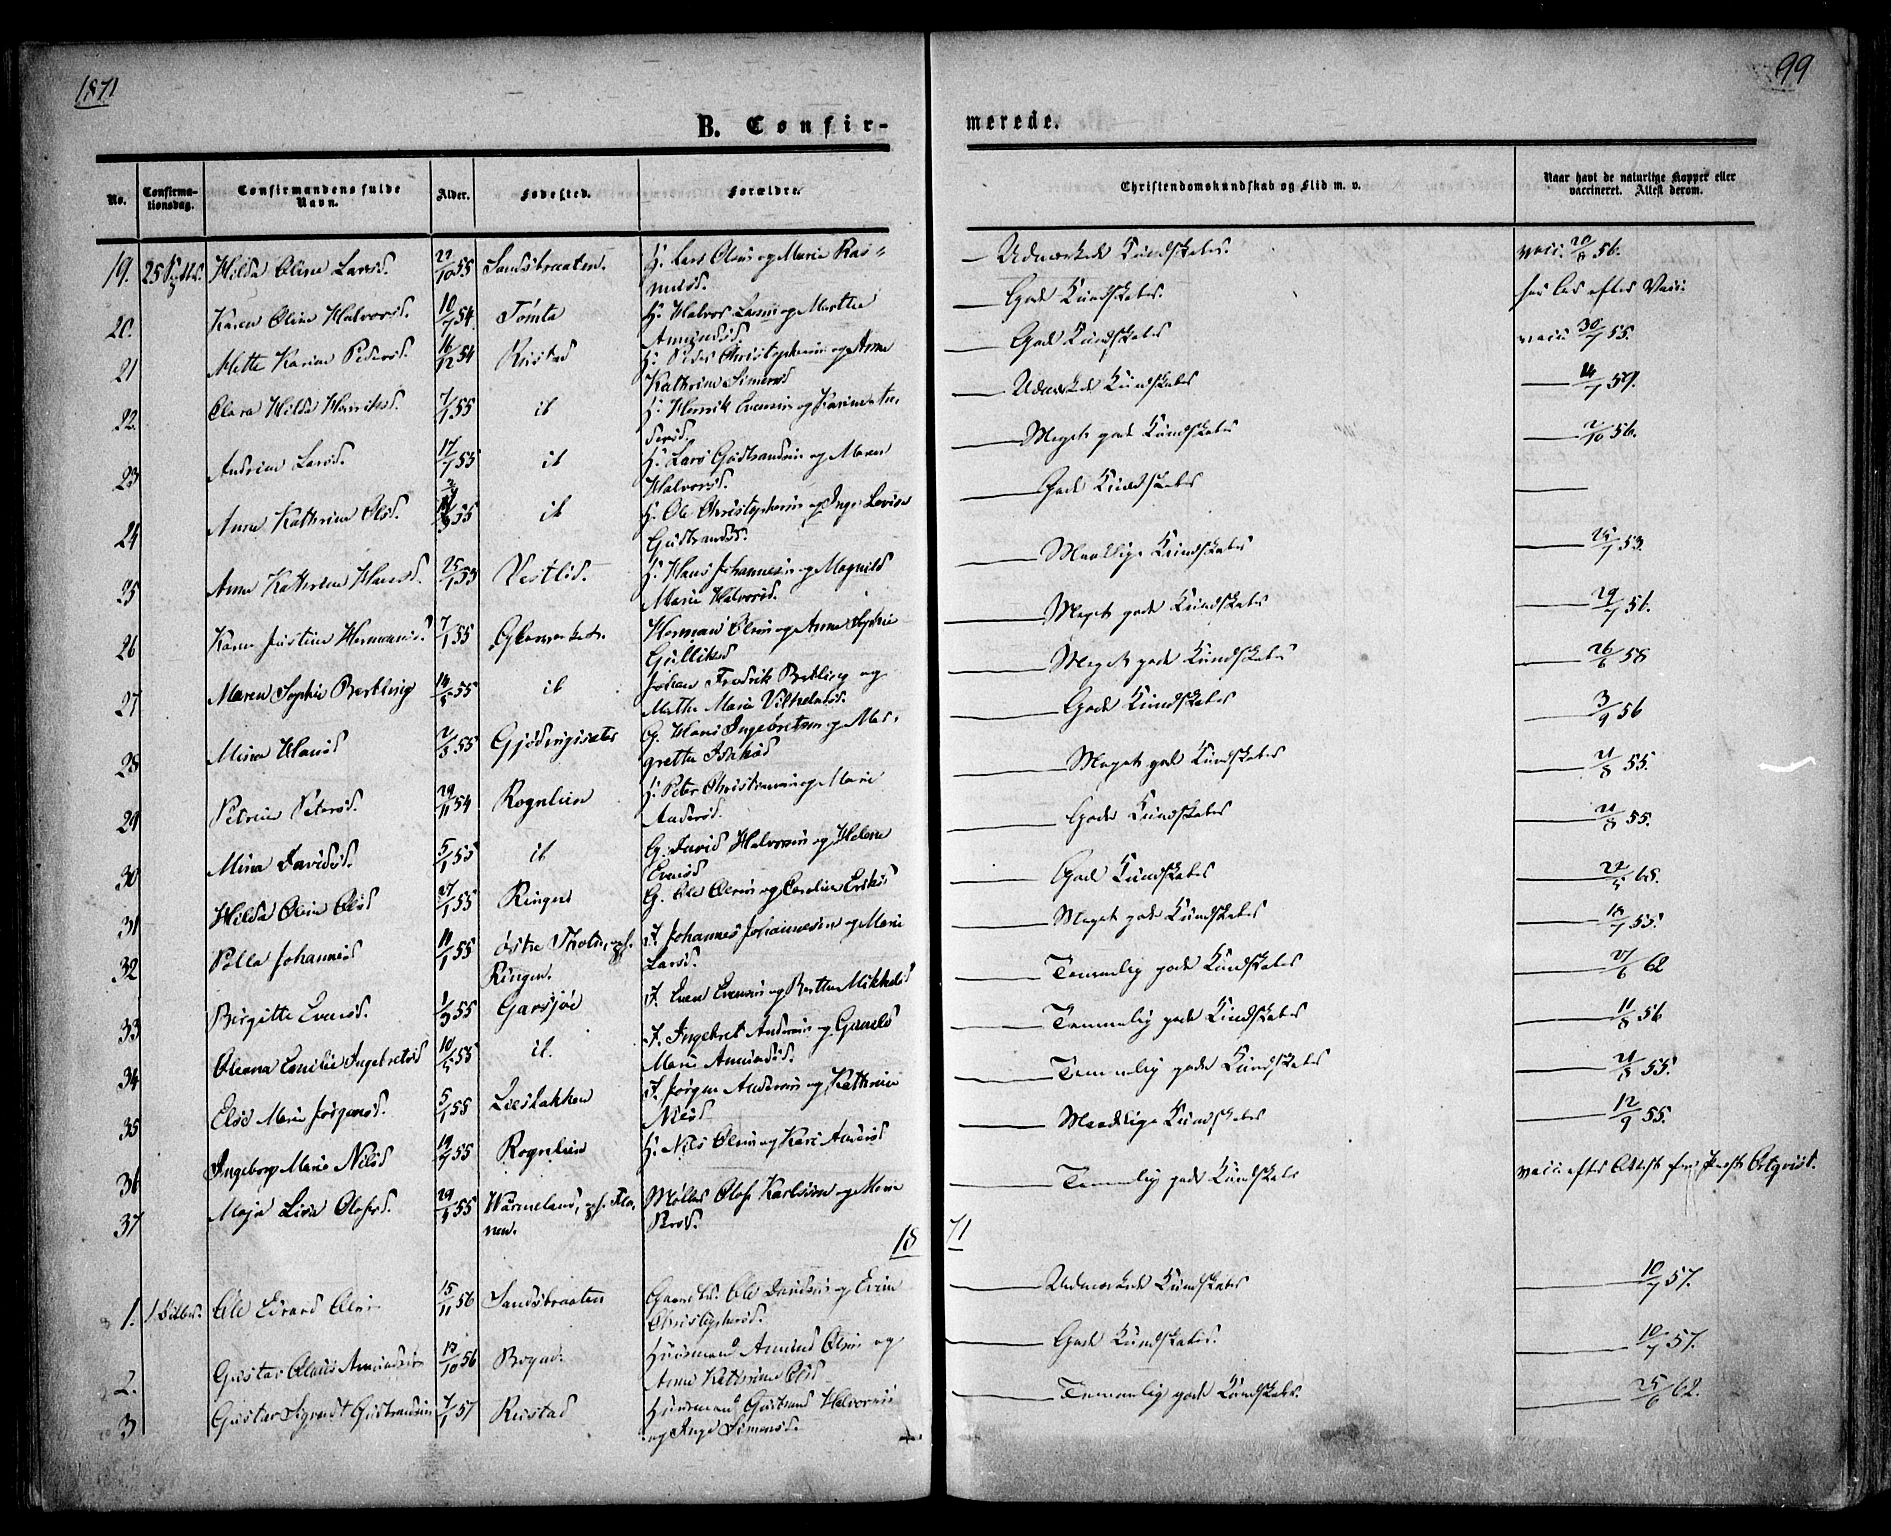 1871
99
B. Confir-
merede.
No.
Confirma-
tionsdag.
Confirmandens fulde
Navn.
Alder.
Fødested.
Forældre.
Christendomskundskab og Flid m. v.
Naar havt de naturlige Kopper eller
vaccineret. Attest derom.
19. 25 Hilda Oline Larsd. 22/10 55 Sandsbraaten. H. Lars Olsen og Marie Ras-
musd. — Udmærkede Kundskaber. vacc. 20/8 56.
20. Karen Oline Halvorsd. 10/7 54. Tømta H. Halvor Larsen og Marthe
Amundsd. — Gode Kundskaber.
21 Mette Karine Pedersd. 16/12 54 Rustad H. Peder Christophersen og Anne
Kathrine Simensd — Gode Kundskaber vacc. 30/7 55.
22. Clara Hilda Henriksd. 7/1 55 it H. Henrik Evensen og Karine An-
dersd. — Udmærkede Kundskaber — 14/7 59.
23 Andrine Larsd. 17/7 55 it H. Lars Gudbrandsen og Maren
Halvorsd. — Meget gode Kundskaber — 2/10 56.
24 Anne Kathrine Olsd. 55 it H. Ole Christophersen og Inge Lovise
Gudbrandsd. — Gode Kundskaber —
25 Anne Kathrine Hansd. 25/1 53 Vestlid. H. Hans Johannesen og Magnild
Marie Halvorsd. — Maadelige Kundskaber — 53.
26 Karen Justine Hermansd. 7/1 55 Herman Olsen og Anne Sophie
Gulliksd — Meget gode Kundskaber — 29/7 56.
27 Maren Sophie Bertling 14/5 55 it Johan Fredrik Bertling og
Mathe Marie Vilhelmsd. — Meget gode Kundskaber — 26/6 58
28 Mina Hansd 2/3 55 Gjødingsæter G. Hans Ingebretsen og Mar-
grethe Isaksd — Gode Kundskaber — 3/9 56
29 Petrine Petersd. 29/11 54 Rognlien H. Peter Christiansen og Marie
Andersd. — Meget gode Kundskaber — 21/8 55.
30 Mina Davidsd. 5/1 55 it G. David Halvorsen og Helene
Evensd — Gode Kundskaber — 21/8 55.
31 Hilda Oline Olsd 27/1 55 Ringen G. Ole Olsen og Caroline Eriksd — Gode Kundskaber — 22/5 65.
32 Johannesd 11/1 55 Østre Thoten, opf.
Ringen. I. Johannes Johannesen og Marie
Larsd. — Meget gode Kundskaber — 18/7 55.
33 Birgitte Evensd. 1/3 55 Garsjøe I. Even Evensen og Berthe Mikkelsd — Temmelig gode Kundskaber — 27/6 62
34 Oleana Emilie Ingebretsd 10/5 55 it. I. Ingebret Andersen og
Marie Amundsd. — Temmelig gode Kundskaber — 11/8 56
35 Else Marie Jørgensd. 5/1 55 Liesbakken I. Jørgen Andersen og Kathrine
Nilsd. — Temmelig gode Kundskaber — 21/8 55.
36 Ingeborg Marie Nilsd 19/7 55 Rognlien H. Nils Olsen og Kari Andersd — Maadelige Kundskaber — 12/9 55.
37 Maja Lisa Olofsd. 29/1 55 Wärmeland, opf.
Møller Olof Karlsson og Maria
— Temmelig gode Kundskaber vacc. efter Attest fra
18 71
1. Ole Edvard Olsen 15/11 56 Sandsbraaten Ole Davidsen og Eveline
Christophersd. — Udmærkede Kundskaber — 10/7 57.
2. Gustav Olaus Amundsen 13/10 56 Huusmand Amund Olsen og
Anne Kathrine Olsd — Gode Kundskaber. — 10/7 57.
3 Gustav Gudbrandsen 7/1 57 Rustad Huusmand Gudbrand Halvorsen
og Inge Simensd. — Temmelig gode Kundskaber. — 25/6 62.